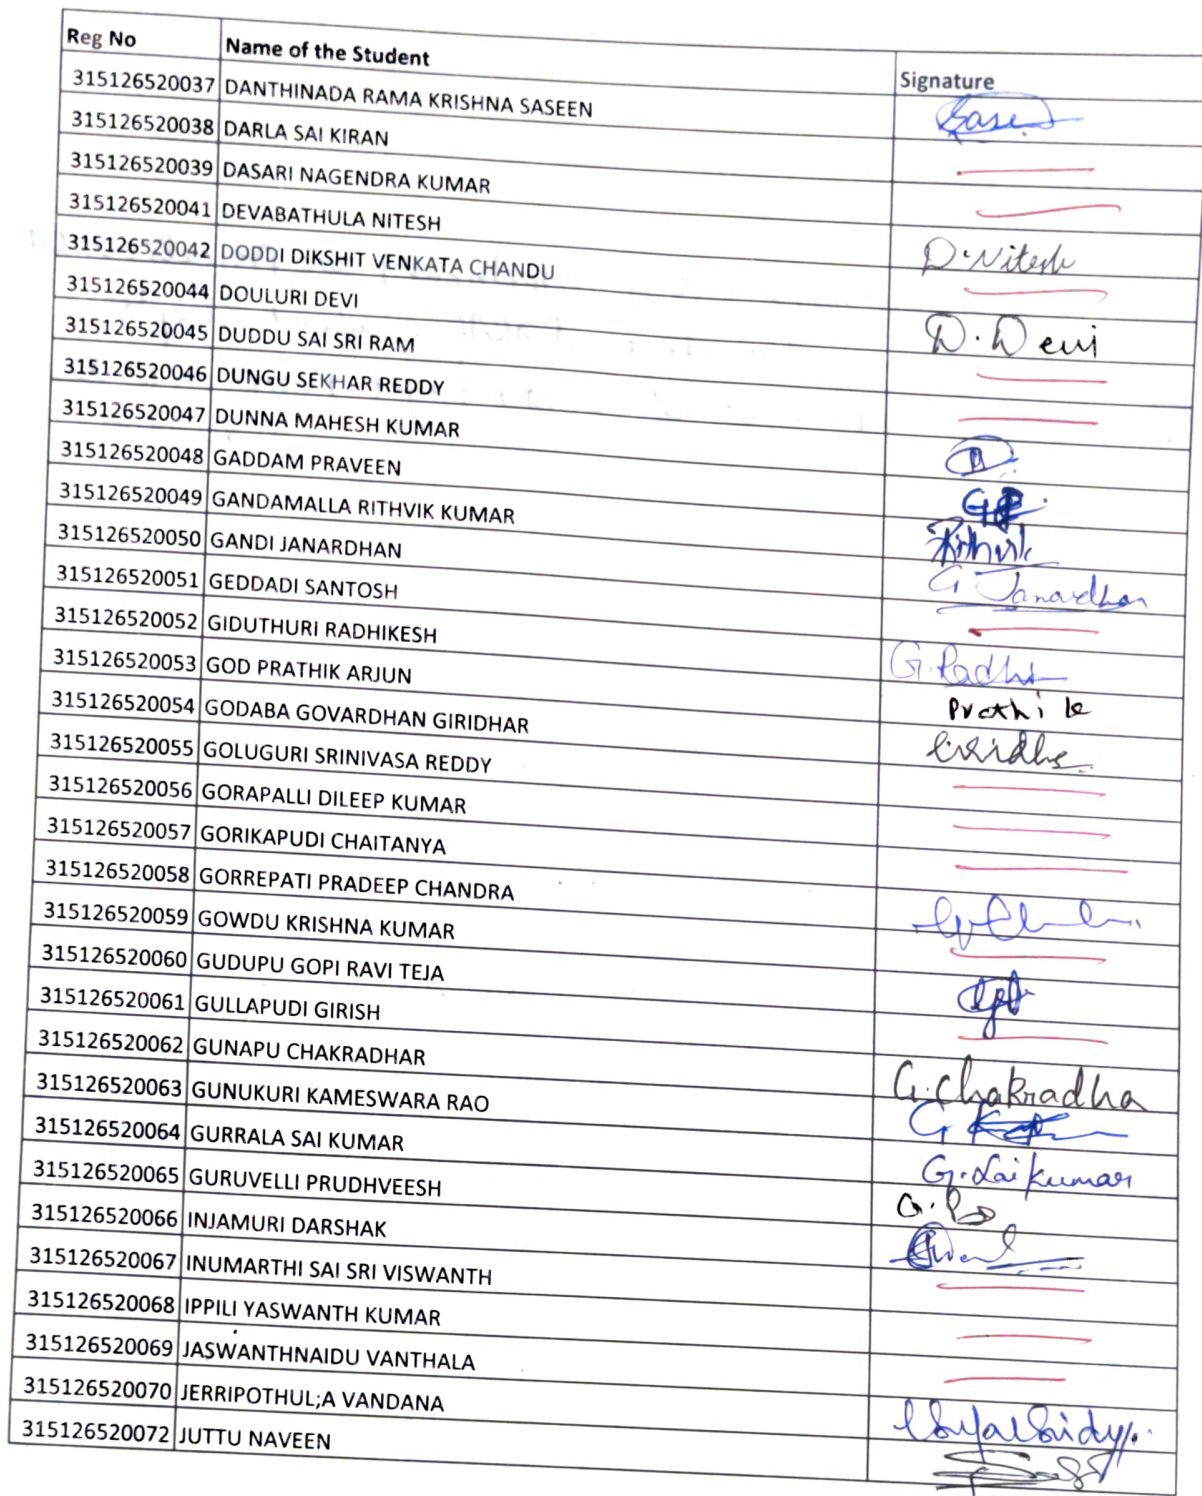 Reg No Name of the Student Signature
315126520037 DANTHINADA RAMA KRISHNA SASEEN Saseen
315126520038 DARLA SAI KIRAN
315126520039 DASARI NAGENDRA KUMAR
315126520041 DEVABATHULA NITESH D.Nitesh
315126520042 DODDI DIKSHIT VENKATA CHANDU
315126520044 DOULURI DEVI D.Devi
315126520045 DUDDU SAI SRI RAM
315126520046 DUNGU SEKHAR REDDY
315126520047 DUNNA MAHESH KUMAR
315126520048 GADDAM PRAVEEN
315126520049 GANDAMALLA RITHVIK KUMAR Rithvik
315126520050 GANDI JANARDHAN G Janardhan
315126520051 GEDDADI SANTOSH
315126520052 GIDUTHURI RADHIKESH G.Radhi
315126520053 GOD PRATHIK ARJUN Prathik
315126520054 GODABA GOVARDHAN GIRIDHAR
315126520055 GOLUGURI SRINIVASA REDDY
315126520056 GORAPALLI DILEEP KUMAR
315126520057 GORIKAPUDI CHAITANYA
315126520058 GORREPATI PRADEEP CHANDRA
315126520059 GOWDU KRISHNA KUMAR
315126520060 GUDUPU GOPI RAVI TEJA
315126520061 GULLAPUDI GIRISH
315126520062 GUNAPU CHAKRADHAR G.Chakradha
315126520063 GUNUKURI KAMESWARA RAO
315126520064 GURRALA SAI KUMAR G.Sai kumar
315126520065 GURUVELLI PRUDHVEESH
315126520066 INJAMURI DARSHAK
315126520067 INUMARTHI SAI SRI VISWANTH
315126520068 IPPILI YASWANTH KUMAR
315126520069 JASWANTHNAIDU VANTHALA
315126520070 JERRIPOTHUL;A VANDANA
315126520072 JUTTU NAVEEN